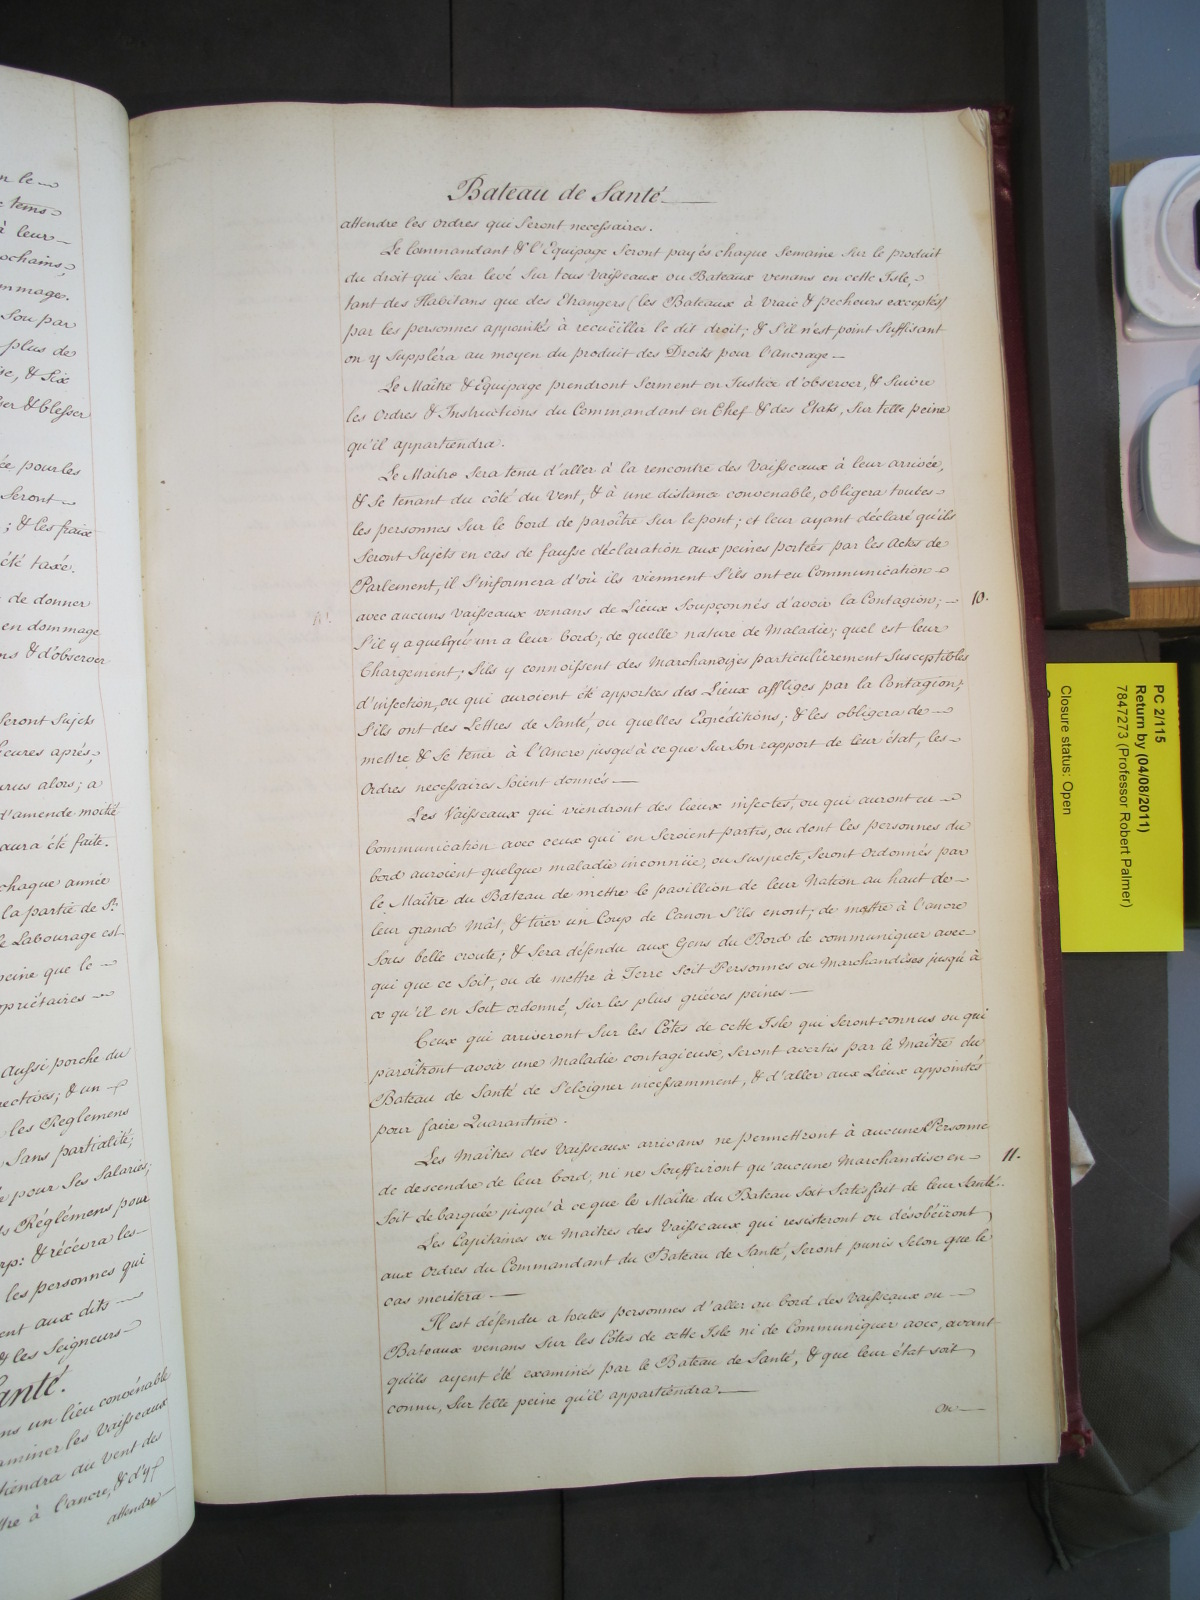 n le
tems
à leur
ochains,
mmage.
Sou par
plus de
se, & Six
ser & blesser
ée pour les
Seront
; & les fraix
été taxé.
de donner
en dommage
ns & d'observer
Seront Sujets
heures après,
alors; a
d'amende moitié
aura été faite.
chaque année
la partie de St
Labourage est
peine que le
opriétaires
aussi porche du
rectives; & un
les Reglemens
Sans partialité;
pour Ses Salaires,
Réglémens pour
rp: & récévra les
les personnes qui
ent aux dits
& les Seigneurs
anté.
ns un lieu convénable
aminer les Vaisseaux
tiendra au vent des
ttre à l'ancre, & d'y
attendre
Bateau de Santé
attendre les ordres qui Seront necessaires.
Le Commandant & l'Equipage Seront payés chaque Semaine Sur le produit
du droit qui Sear levé Sur tous Vaisseaux ou Bateaux venans en cette Isle,
tant des Habitans que des Etrangers (les Bateaux à Vraic & pecheurs exceptés)
par les personnes appointés à recuëiller le dit droit; & S'il n'est point Suffisant
on y Suppléra au moyen du produit des Droits pour l'ancrage
Le Maître & Equipage prendront Serment en Justice d'observer, & Suivre
les Ordres & Instructions du Commandant en Chef & des Etats, Sur telle peine
qu'il appartiendra.
Le Maitre Sera tenu d'aller à la rencontre des Vaisseaux à leur arrivée,
& Se tenant du côté du Vent, & à une distance convenable, obligera toutes
les personnes Sur le bord de paroître Sur le pont; et leur ayant déclaré qu'ils
Seront Sujets en cas de fausse déclaration aux peines portées par les Actes de
Parlement, il S'infournera d'où ils viennent S'ils ont eu Communication
avec aucuns Vaisseaux venans de Lieux Soupçonnés d'avoir la Contagion;
10.
S'il y a quelqu'un a leur bord; de quelle nature de Maladie; quel est leur
Chargement; S'ils y connoissent des Marchandizes particuliérement Susceptibles
d'infection, ou qui auroient été apportées des Lieux affligés par la Contagion;
S'ils ont des Lettres de Santé, ou quelles Expéditions; & les obligera de
mettre & Se tenir à l'Ancre jusqu'à ce que Sur Son rapport de leur état, les
Ordres necessaires Soient donnés
Les Vaisseaux qui viendront des lieux infectés, ou qui auront eu
Communication avec ceux qui en Seroient partis, ou dont les personnes du
bord auroient quelque maladie inconnüe, ou Suspecte, Seront Ordonnés par
le Maître du Bateau de mettre le pavillion de leur Nation au haut de
leur grand Mât, & tirer un Coup de Canon S'ils en ont; de mettre à l'ancre
Sous belle croute; & Sera défendu aux Gens du Bord de communiquer avec
qui que ce Soit, ou de mettre à Terre Soit Personnes ou Marchandises jusqu'à
ce qu'il en Soit ordonné, Sur les plus griéves peines
Ceux qui arriveront Sur les Côtes de cette Isle qui Seront connus ou qui
paroîtront avoir une Maladie contagieuse, Seront avertis par le Maître du
Bateau de Santé de S'eloigner incessamment, & d'aller aux Lieux appointés
pour faire Quarantine.
Les Maîtres des Vaisseaux arrivans ne permettront à aucunes Personne
11.
de descendre de leur bord, ni ne Souffriront qu'aucune Marchandise en
Soit debarquée jusqu'à ce que le Maître du Bateau Soit Satisfait de leur Santé.
Les Capitaines ou Maitres des Vaisseaux qui resisteront ou désobéiront
aux Ordres du Commandant du Bateau de Santé, Seront punis Selon que le
cas meritera
Il est défendu a toutes personnes d'aller au bord des Vaisseaux ou
Bateaux venans Sur les Côtes de cette Isle ni de Communiquer avec, avant
qu'ils ayent été examinés par le Bateau de Santé, & que leur état soit
connu, Sur telle peine qu'il appartiendra.
on
PC 2/115
Return by (04/08/2011)
7847273 (Professor Robert Palmer)
Closure status: Open